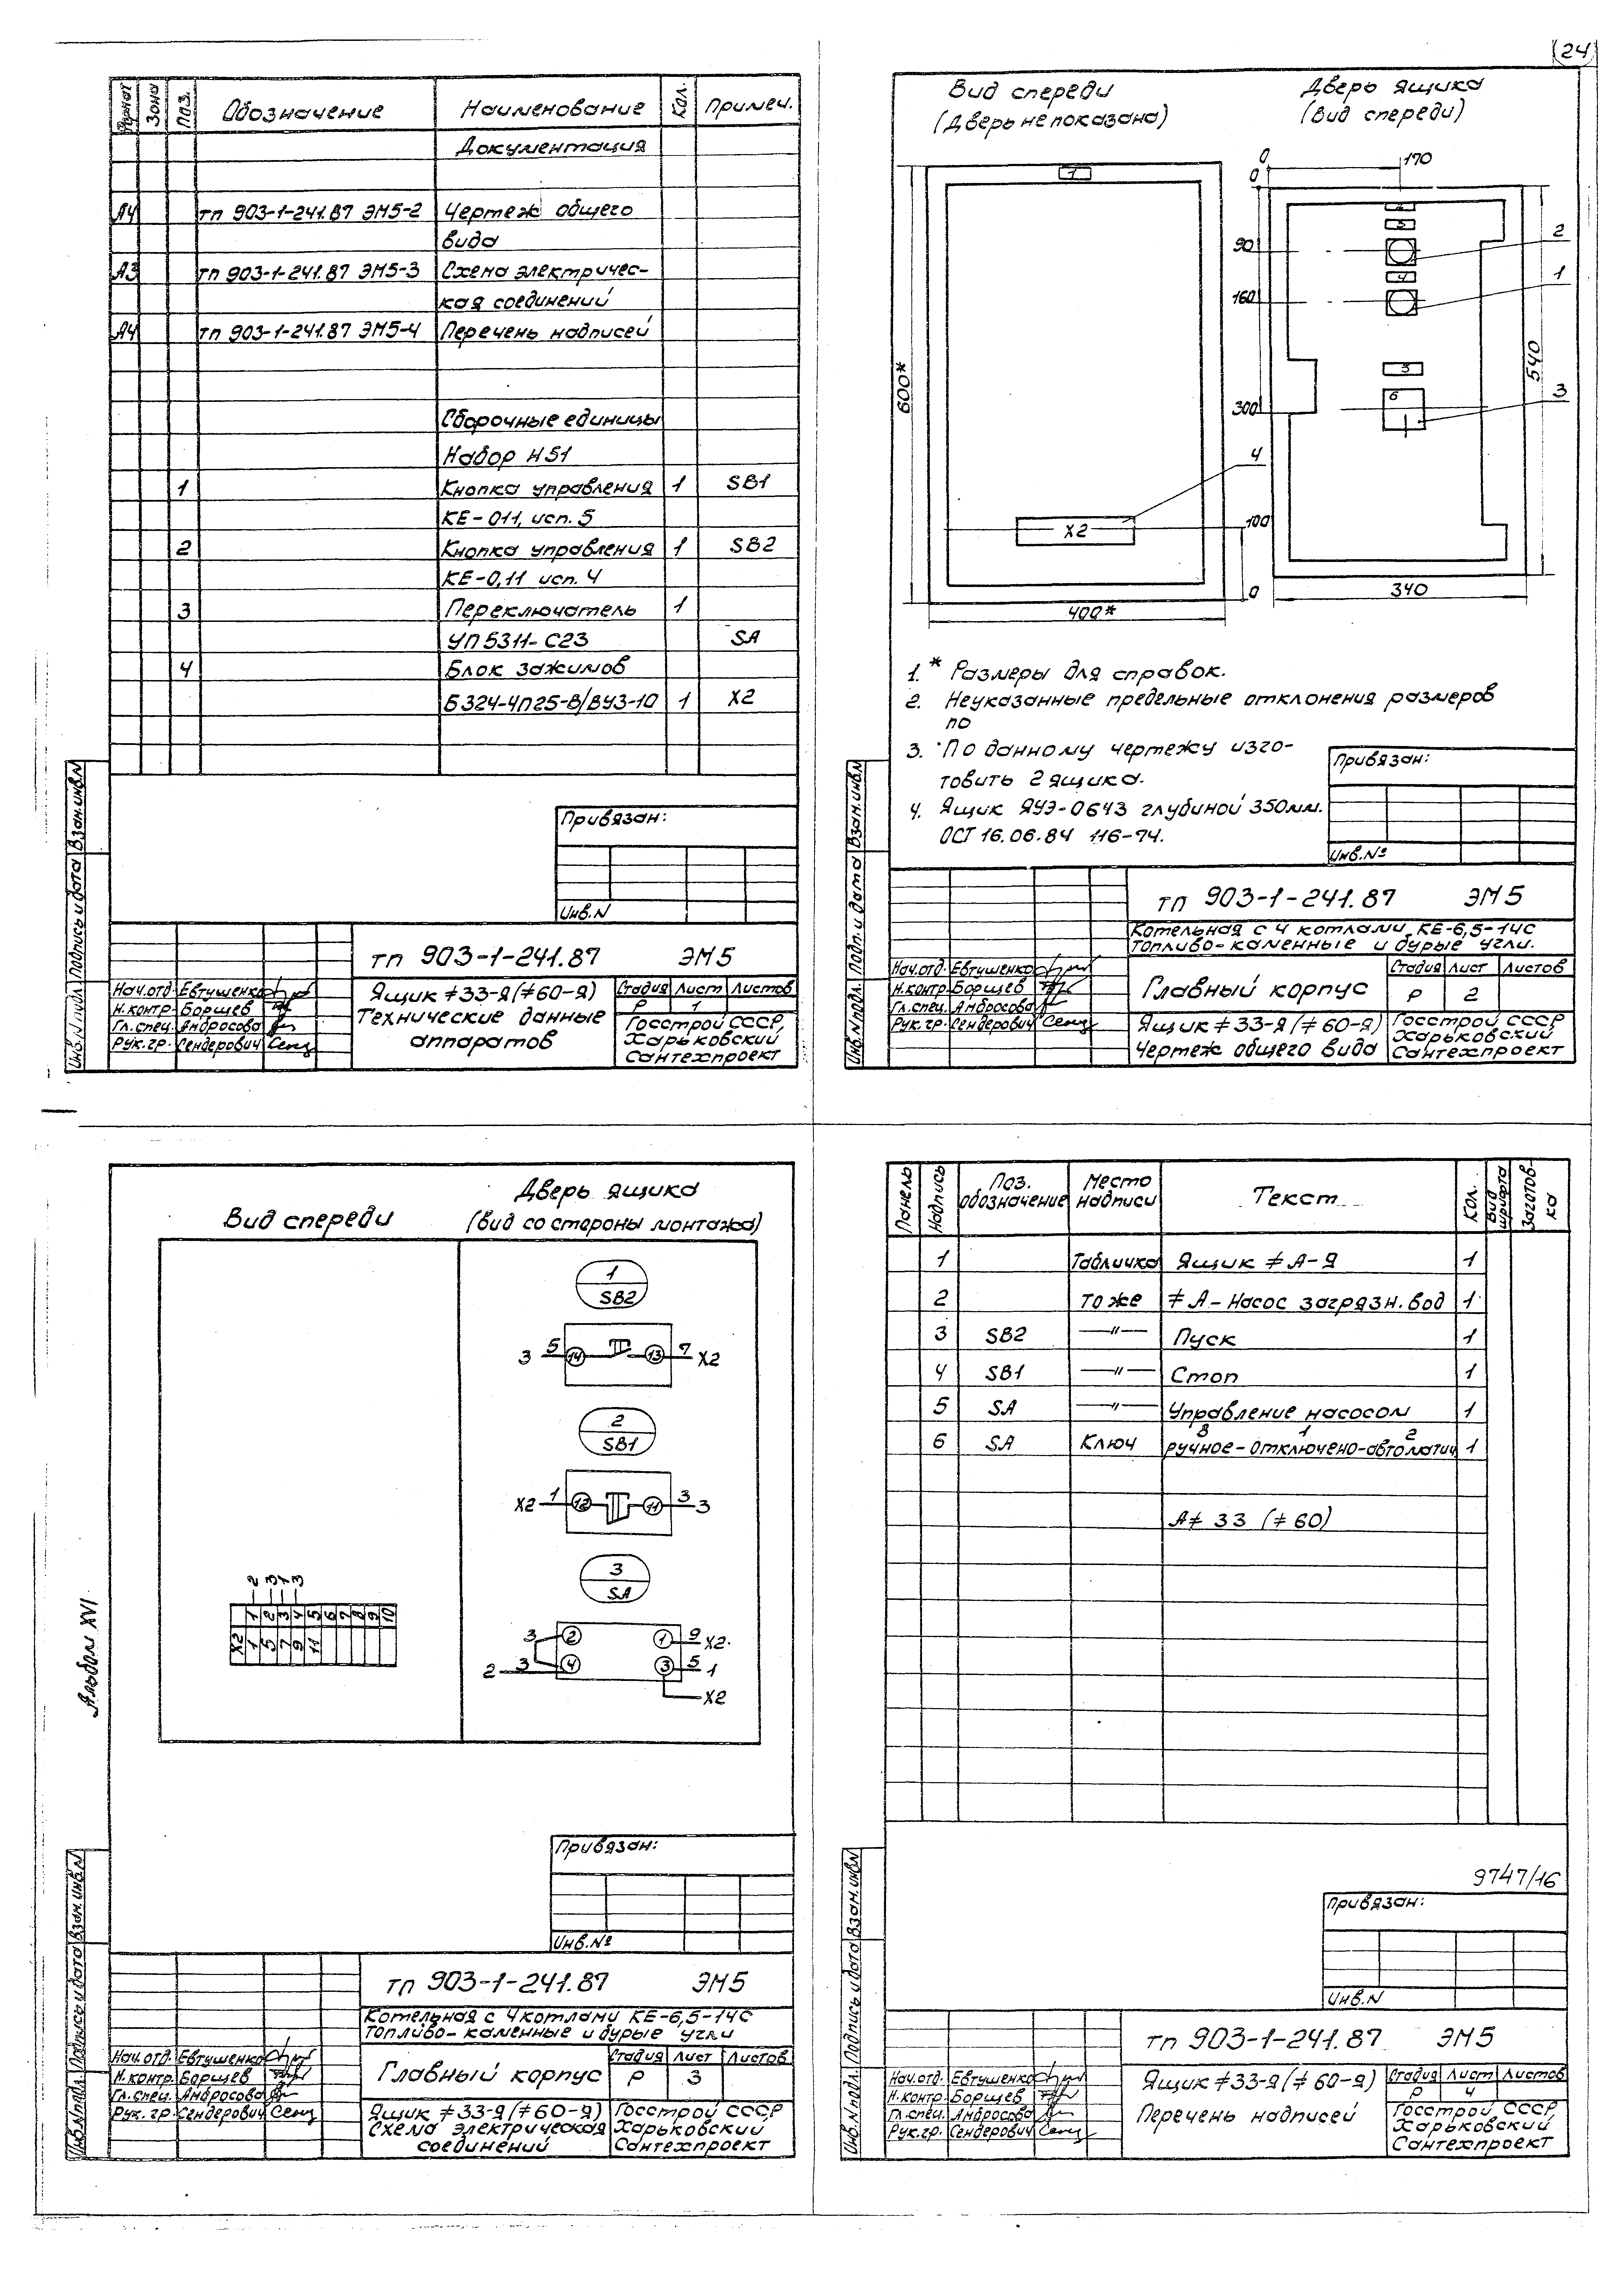 24
Формат Зона Поз. Обозначение Наименование Кол. Примеч.
Документация
А4 тп 903-1-241.87 ЭМ5-2 Чертеж общего
вида
А3 тп 903-1-241.87 ЭМ5-3 Схема электричес-
кая соединений
А4 тп 903-1-241.87 ЭМ5-4 Перечень надписей
Сборочные единицы
Набор Н51
1 Кнопка управления 1 SB1
КЕ-011, исп. 5
2 Кнопка управления 1 SB2
КЕ-0,11 исп. 4
3 Переключатель 1
УП5311-С23 SA
4 Блок зажимов
Б324-4П25-В/ВУ3-10 1 Х2
Привязан:
Инв.N
Инв.N подл. Подпись и дата Взам.инв.N
тп 903-1-241.87 ЭМ5
Нач.отд. Евтушенко
Н.контр. Борщев
Гл.спец. Андросова
Рук.гр. Сендерович
Ящик ≠33-Я (≠60-Я)
Технические данные
аппаратов
Стадия Лист Листов
Р 1
Госстрой СССР,
Харьковский
Сантехпроект
Вид спереди
(Дверь не показана)
1
600*
400*
Х2
4
100
0
Дверь ящика
(Вид спереди)
0
0
170
90
160
300
2
3
4
5
6
2
1
3
540
340
1. * Размеры для справок.
2. Неуказанные предельные отклонения размеров
по
3. По данному чертежу изго-
товить 2 ящика.
4. Ящик ЯУЭ-0643 глубиной 350мм.
ОСТ 16.06.84 116-74.
Привязан:
Инв.№
Инв.N подл. Подп. и дата Взам.инв.N
тп 903-1-241.87 ЭМ5
Котельная с 4 котлами КЕ-6,5-14С
Топливо-каменные и бурые угли.
Нач.отд. Евтушенко
Н.контр. Борщев
Гл.спец. Андросова
Рук.гр. Сендерович
Главный корпус
Стадия Лист Листов
Р 2
Ящик ≠33-Я (≠60-Я)
Чертеж общего вида
Госстрой СССР
Харьковский
Сантехпроект
Альбом XVI
Вид спереди
Дверь ящика
(вид со стороны монтажа)
1
SB2
3 5 14 13 7 Х2
2
SB1
Х2 1 12 11 3 3
3
SA
3 2 1 9 Х2.
2 3 4 3 5 1
Х2
2 3 1 3
1 2 3 4 5 6 7 8 9 10
Х2 1 5 7 9 11
Привязан:
Инв.№
Инв.N подл. Подпись и дата Взам.инв.N
тп 903-1-241.87 ЭМ5
Котельная с 4 котлами КЕ-6,5-14С
Топливо-каменные и бурые угли
Нач.отд. Евтушенко
Н.контр. Борщев
Гл.спец. Андросова
Рук.гр. Сендерович
Главный корпус
Стадия Лист Листов
Р 3
Ящик ≠33-Я (≠60-Я)
Схема электрическая
соединений
Госстрой СССР
Харьковский
Сантехпроект
Панель Надпись Поз. обозначение Место надписи Текст Кол. Вид шрифта Заготов-ка
1 Табличка Ящик ≠ А-Я 1
2 То же ≠ А-Насос загрязн. вод 1
3 SB2 —"— Пуск 1
4 SB1 —"— Стоп 1
5 SA —"— Управление насосом 1
8 1 2
6 SA Ключ ручное-отключено-автоматич 1
А≠ 33 (≠ 60)
9747/16
Привязан:
Инв.N
Инв.N подл. Подпись и дата Взам.инв.N
тп 903-1-241.87 ЭМ5
Нач.отд. Евтушенко
Н.контр. Борщев
Гл.спец. Андросова
Рук.гр. Сендерович
Ящик ≠33-Я (≠60-Я)
Перечень надписей
Стадия Лист Листов
Р 4
Госстрой СССР
Харьковский
Сантехпроект